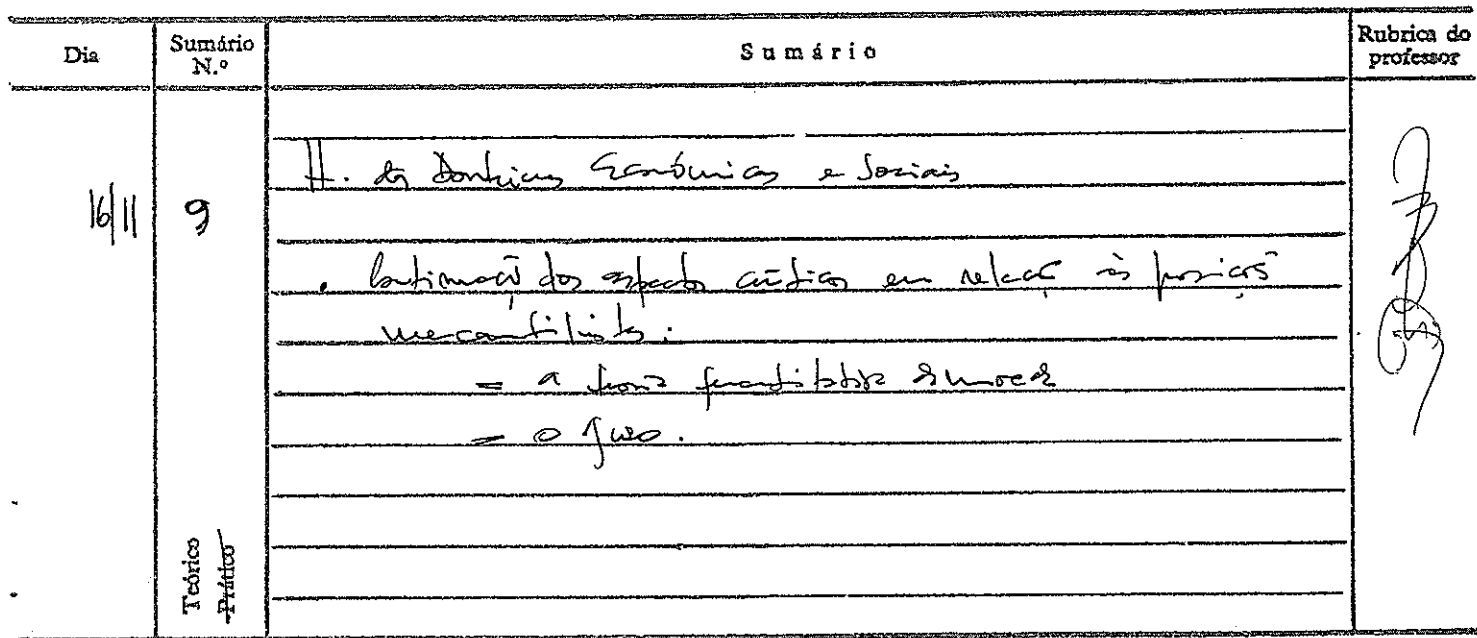 Dia
Sumário N.º
Sumário
Rubrica do professor
16/11
9
H. das Doutrinas Económicas e Sociais
. Continuação dos aspectos críticos em relação às posições
mercantilistas:
= a teoria quantitativa da moeda
= o juro.
Teórico
Prático